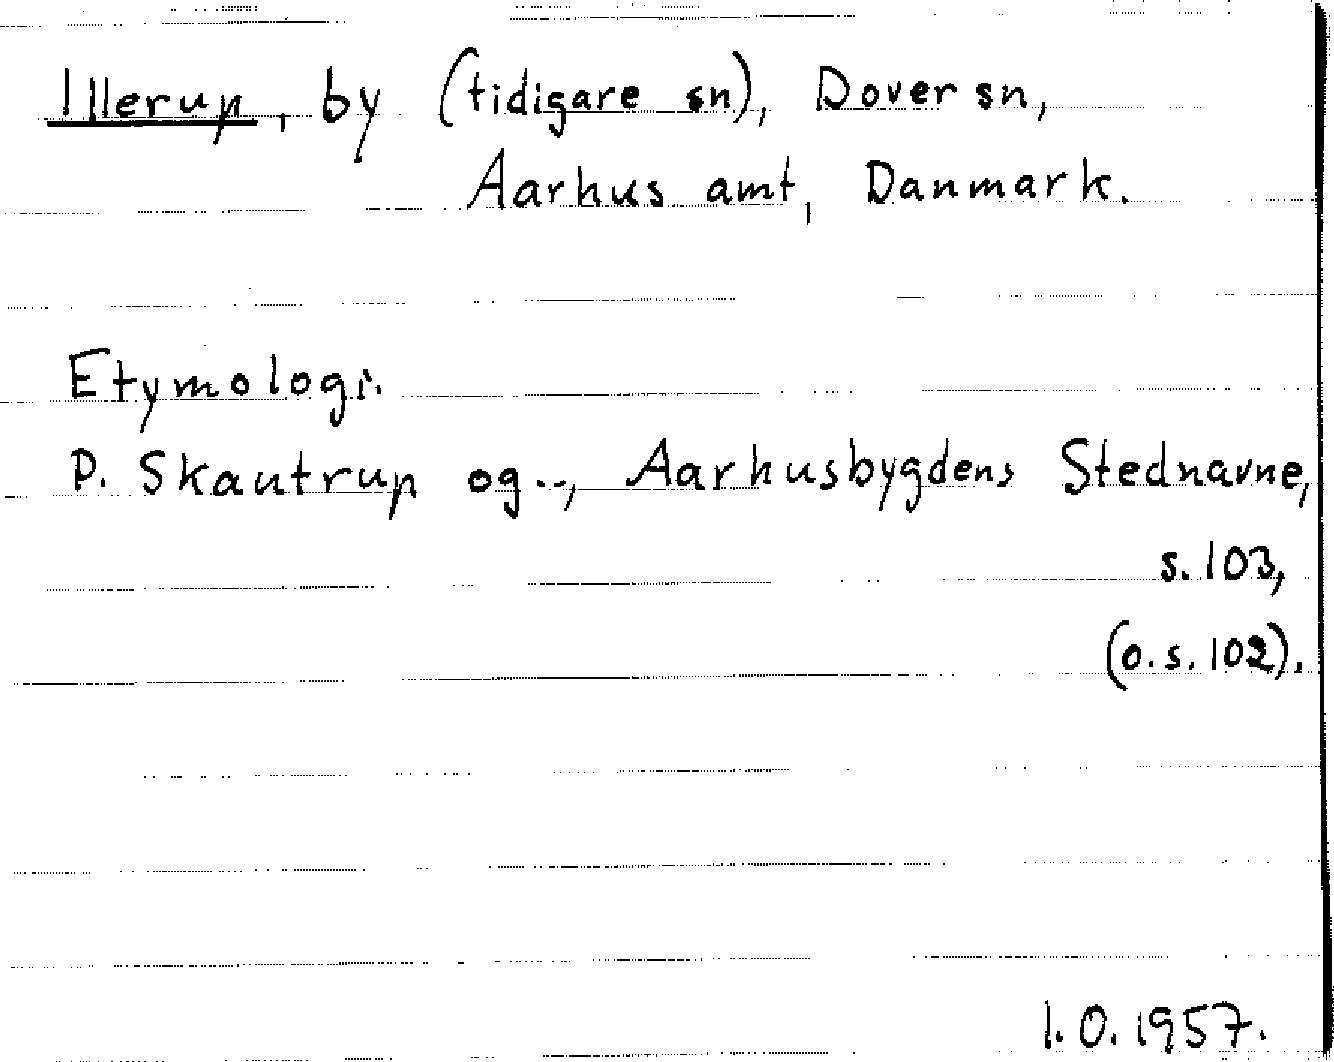 Illerup, by (tidigare sn), Dover sn,
Aarhus amt, Danmark.
Etymologi.
P. Skautrup og.., Aarhusbygdens Stednavne,
s. 103,
(o. s. 102).
I.O. 1957.